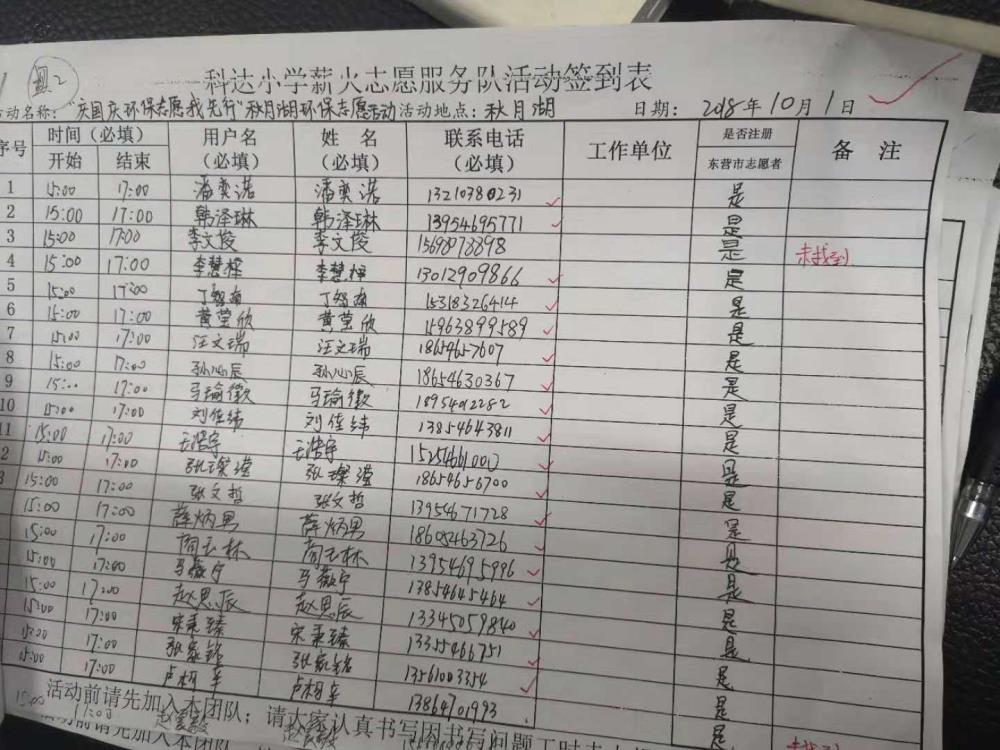 县2
科达小学薪火志愿服务队活动签到表
活动名称："庆国庆环保志愿我先行"秋月湖环保志愿活动 活动地点：秋月湖 日期：2018年10月1日
序号 时间（必填） 用户名（必填） 姓 名（必填） 联系电话（必填） 工作单位 是否注册 东营市志愿者 备 注
开始 结束
1 15:00 17:00 潘奕诺 潘奕诺 13210380231 是
2 15:00 17:00 韩泽琳 韩泽琳 13954695771 是
3 15:00 17:00 李文俊 李文俊 15698973398 是 未找到
4 15:00 17:00 李慧樿 李慧樿 13012909866 是
5 15:00 17:00 丁智楠 丁智楠 15318326414 是
6 15:00 17:00 黄莹欣 黄莹欣 15963899589 是
7 15:00 17:00 汪文瑞 汪文瑞 18659657607 是
8 15:00 17:00 孙心辰 孙心辰 18654630367 是
9 15:00 17:00 马瑜徽 马瑜徽 18954012282 是
10 15:00 17:00 刘佳纬 刘佳纬 13854643811 是
11 15:00 17:00 王浩宇 王浩宇 是
2 15:00 17:00 张璨滢 张璨滢 18654656700 是
3 15:00 17:00 张文哲 张文哲 13954671728 是
15:00 17:00 薛炳男 薛炳男 18602463726 是
15:00 17:00 商玉林 商玉林 13954695996 是
15:00 17:00 马薇宁 马薇宁 13854645464 是
15:00 17:00 赵思辰 赵思辰 13345059840 是
15:00 17:00 宋秉臻 宋秉臻 13355466751 是
15:00 17:00 张家铭 张家铭 13561003354 是
15:00 17:00 卢柯辛 卢柯辛 13864701993 是
活动前请先加入本团队；请大家认真书写因书写问题工时
15:00 17:00